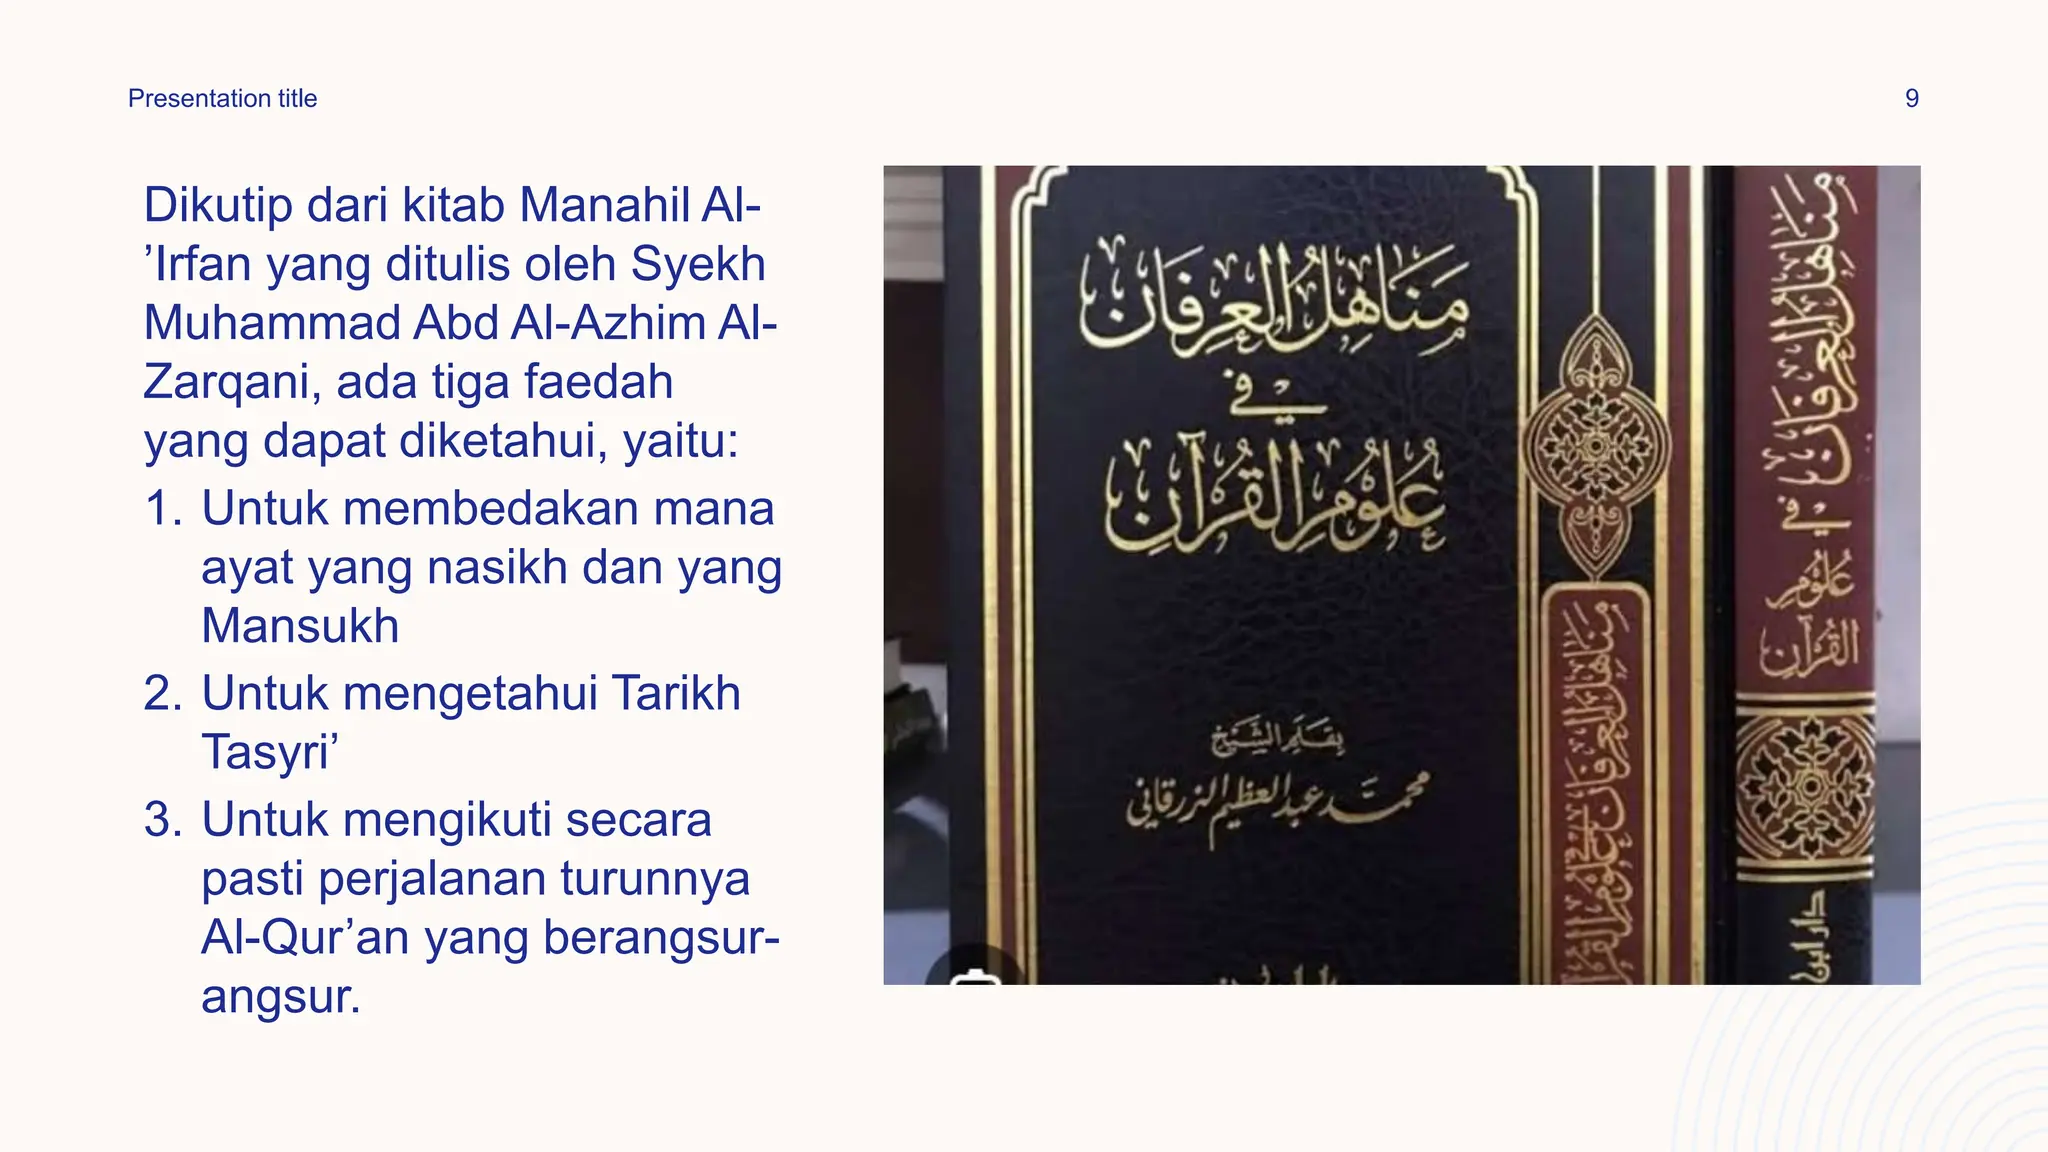 Presentation title
9
Dikutip dari kitab Manahil Al-
’Irfan yang ditulis oleh Syekh
Muhammad Abd Al-Azhim Al-
Zarqani, ada tiga faedah
yang dapat diketahui, yaitu:
1. Untuk membedakan mana
ayat yang nasikh dan yang
Mansukh
2. Untuk mengetahui Tarikh
Tasyri’
3. Untuk mengikuti secara
pasti perjalanan turunnya
Al-Qur’an yang berangsur-
angsur.
مَنَاهِلُ العِرفَان
في
عُلُومِ القُرآنِ
بِقَلَمِ الشَّيْخ
محمّد عبد العظيم الزرقاني
مَنَاهِلُ العِرفَان في عُلُومِ القُرآن
مَنَاهِلُ العِرفَان في
عُلُومِ
القُرآنِ
دار ابن